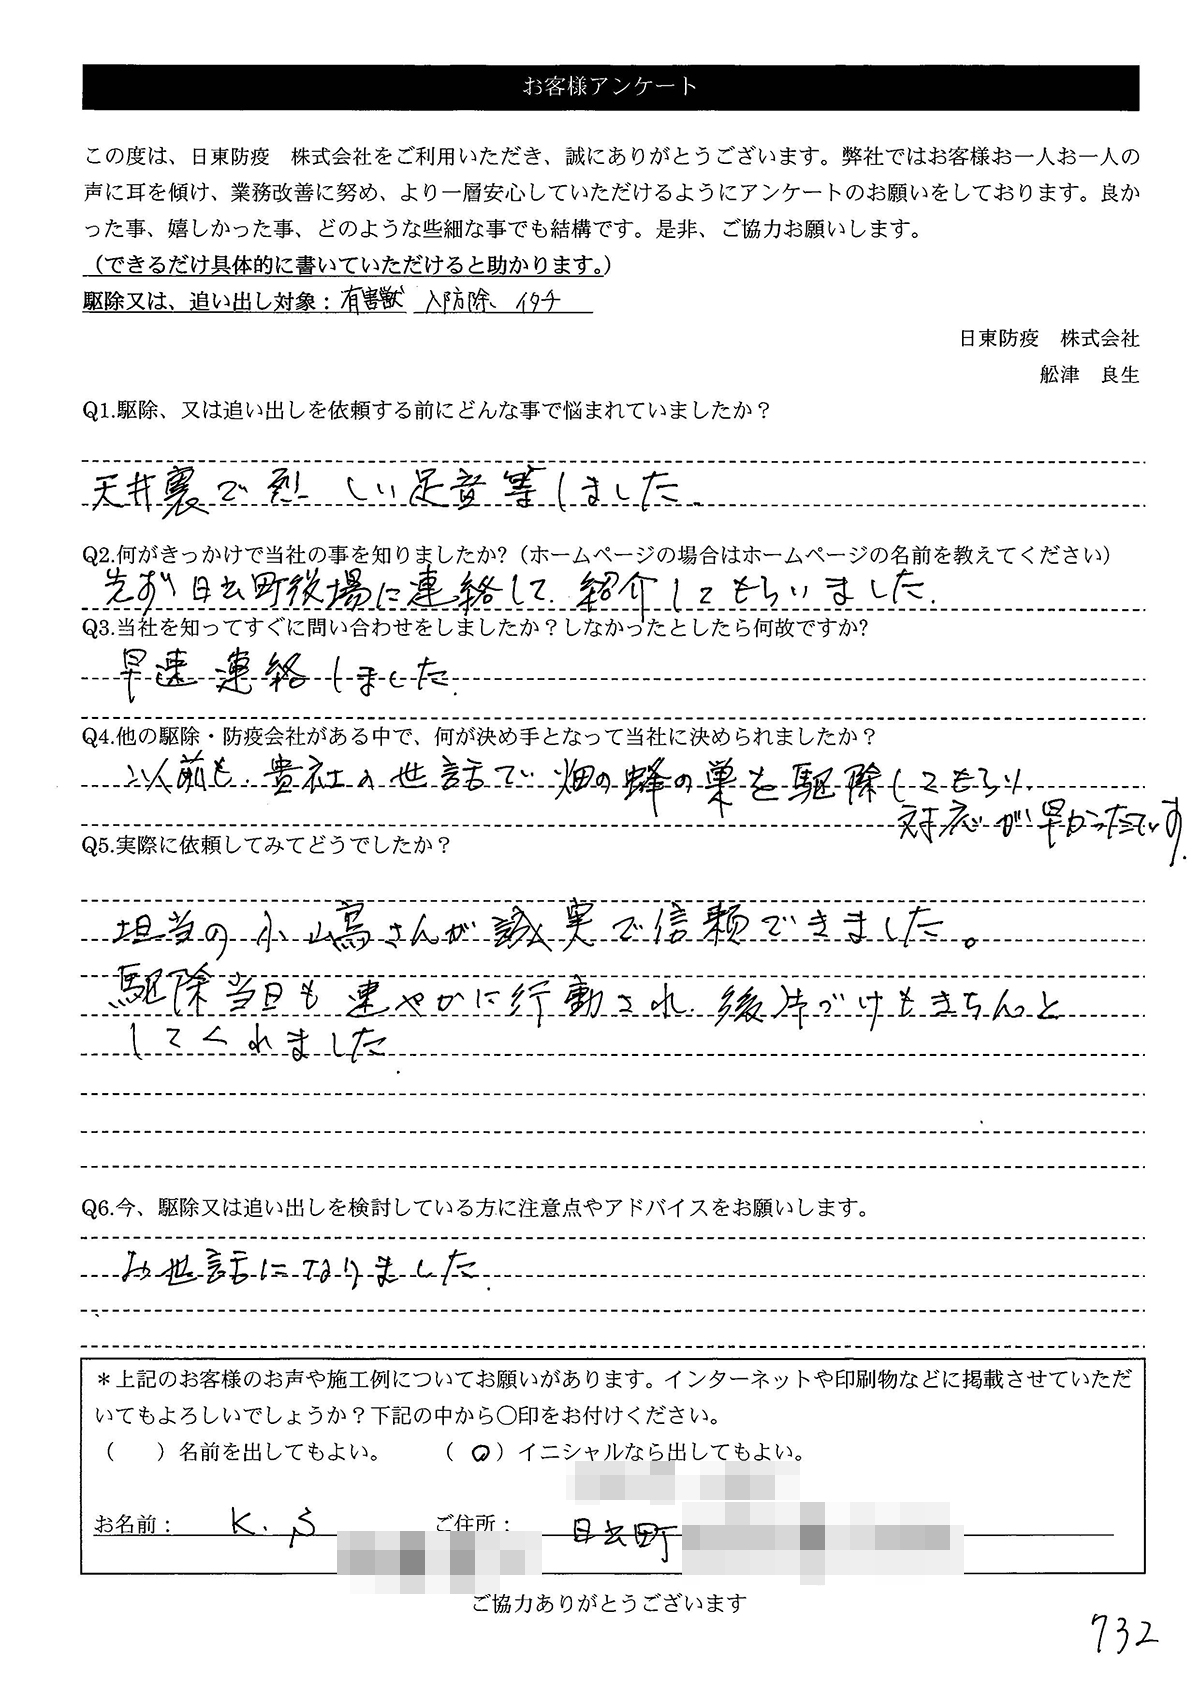 お客様アンケート
この度は、日東防疫　株式会社をご利用いただき、誠にありがとうございます。弊社ではお客様お一人お一人の
声に耳を傾け、業務改善に努め、より一層安心していただけるようにアンケートのお願いをしております。良か
った事、嬉しかった事、どのような些細な事でも結構です。是非、ご協力お願いします。
（できるだけ具体的に書いていただけると助かります。）
駆除又は、追い出し対象：有害獣 防除、イタチ
日東防疫　株式会社
舩津　良生
Q1.駆除、又は追い出しを依頼する前にどんな事で悩まれていましたか？
天井裏で烈しい足音等しました。
Q2.何がきっかけで当社の事を知りましたか?（ホームページの場合はホームページの名前を教えてください）
先ず日出町役場に連絡して、紹介してもらいました。
Q3.当社を知ってすぐに問い合わせをしましたか？しなかったとしたら何故ですか?
早速連絡しました。
Q4.他の駆除・防疫会社がある中で、何が決め手となって当社に決められましたか？
以前も、貴社の世話で畑の蜂の巣を駆除してもらい、
対応が早かったです。
Q5.実際に依頼してみてどうでしたか？
担当の小嶌さんが誠実で信頼できました。
駆除当日も速やかに行動され、後片づけもきちんと
してくれました.
Q6.今、駆除又は追い出しを検討している方に注意点やアドバイスをお願いします。
お世話になりました.
＊上記のお客様のお声や施工例についてお願いがあります。インターネットや印刷物などに掲載させていただ
いてもよろしいでしょうか？下記の中から〇印をお付けください。
（　　）名前を出してもよい。　　（ 〇 ）イニシャルなら出してもよい。
お名前： K.S ご住所： 日出町
ご協力ありがとうございます
732